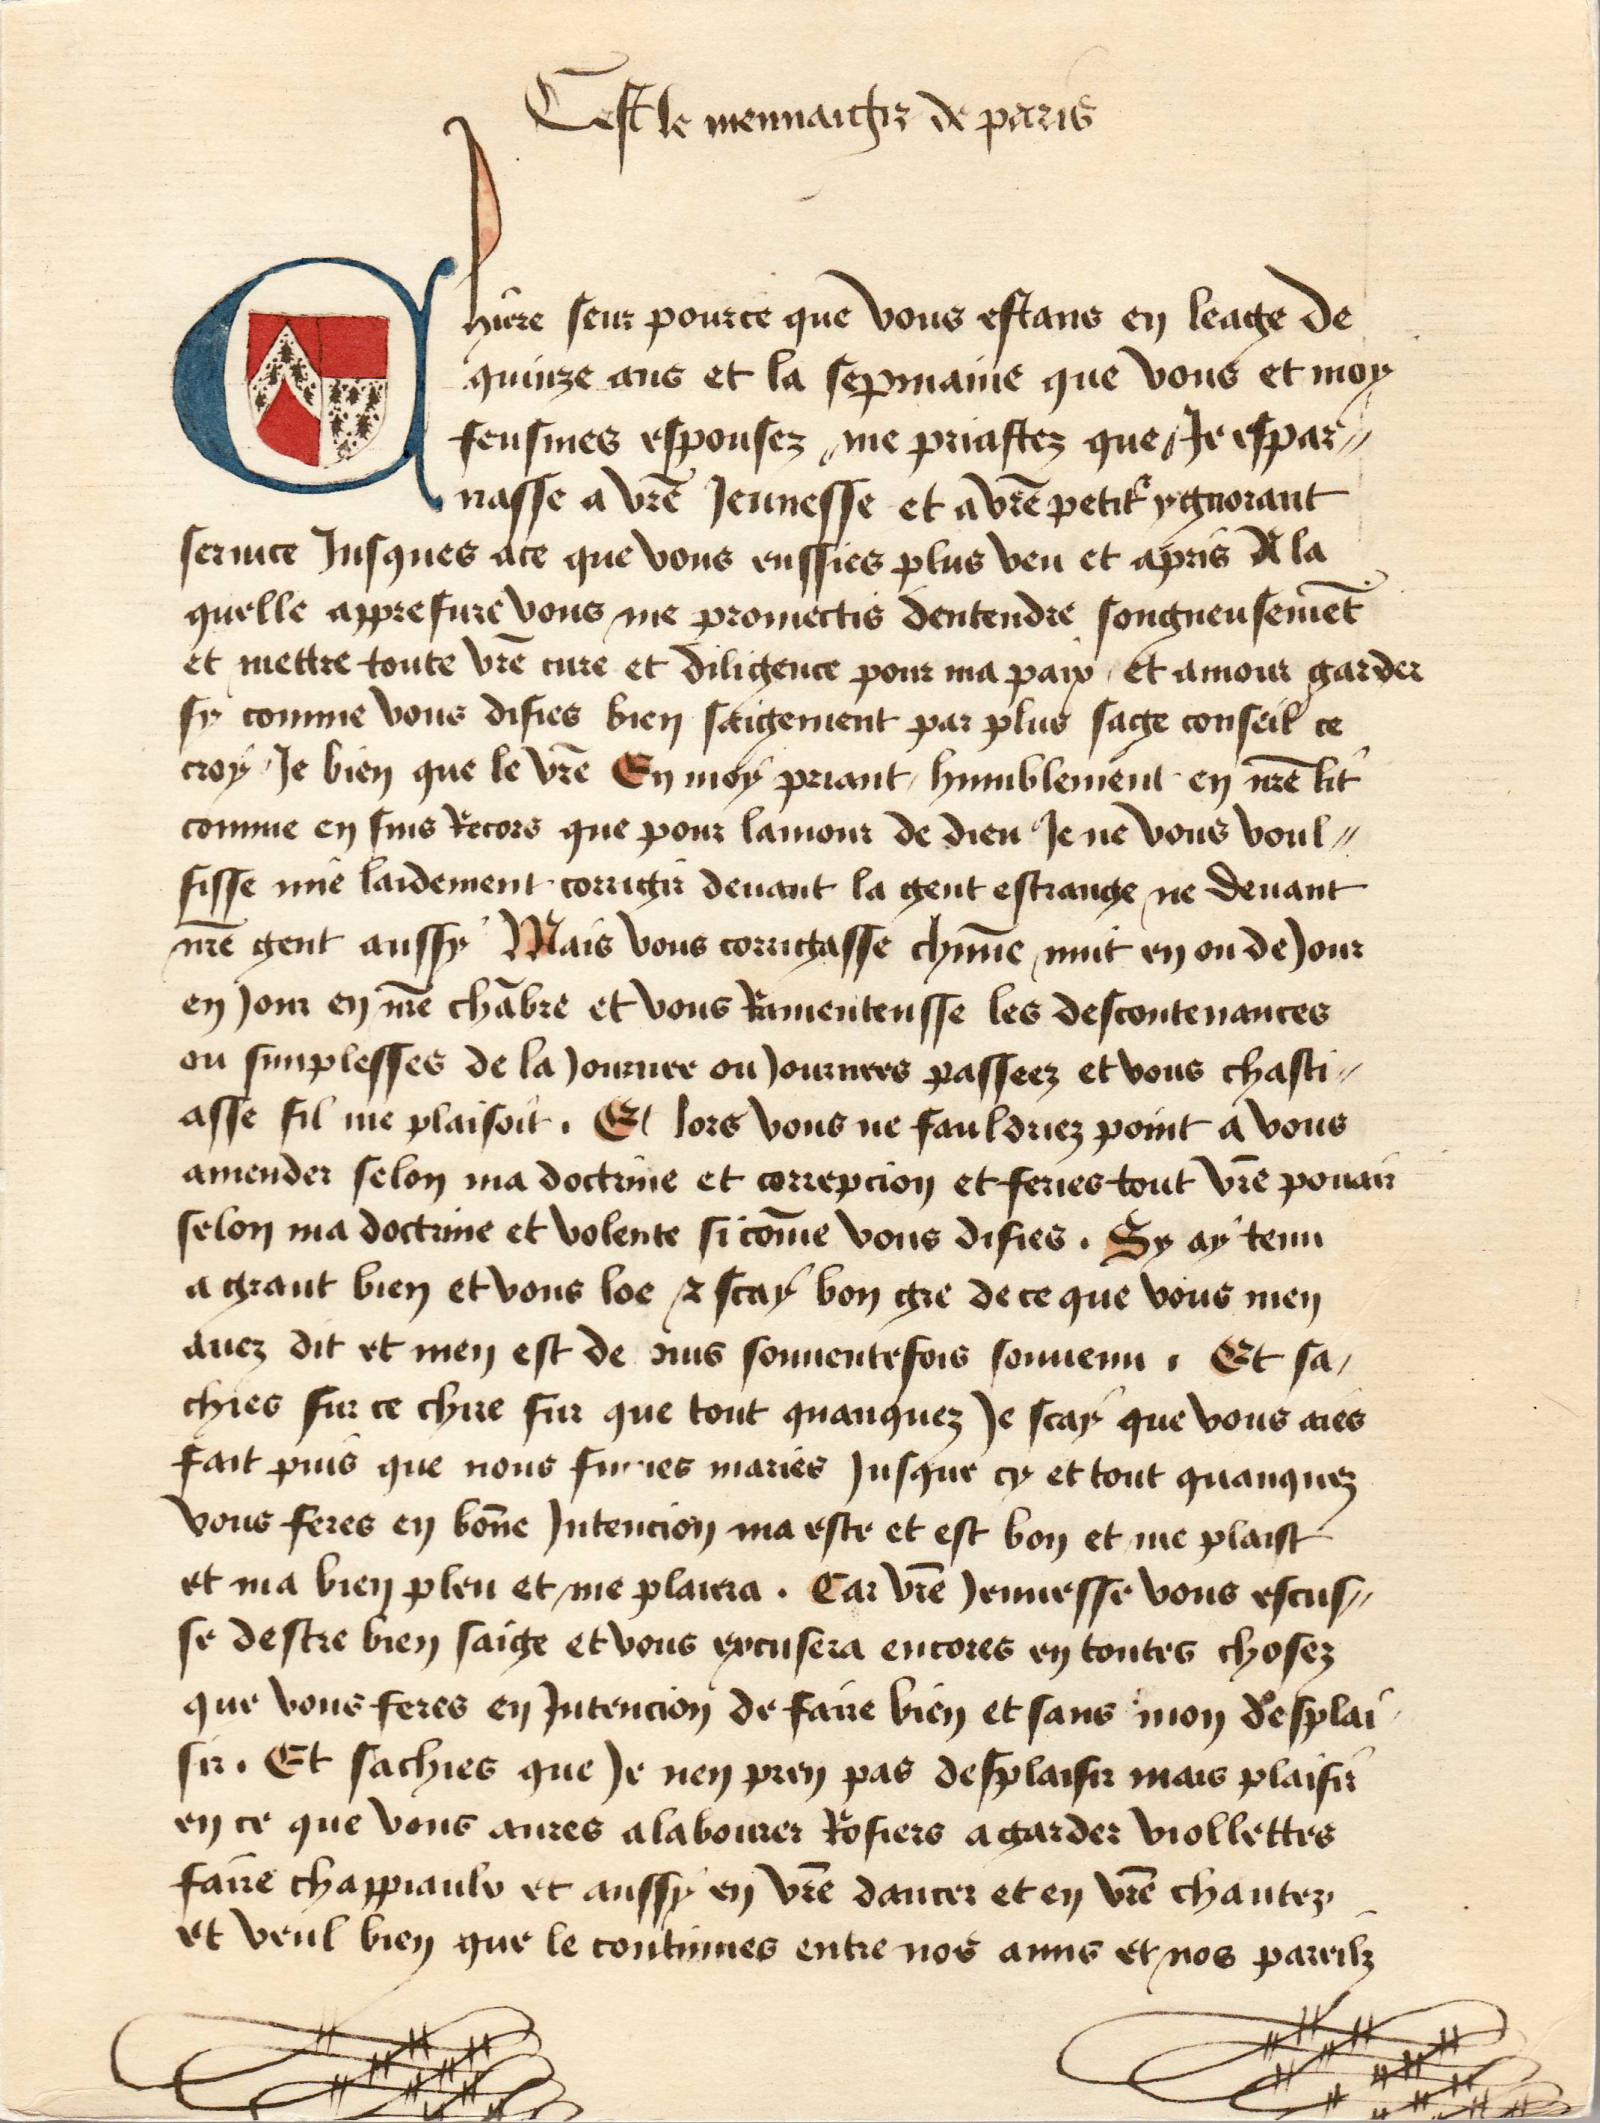 Cest le mennaigier de paris
Chiere seur pource que vous estans en leage de
quinze ans et la sepmaine que vous et moy
feusmes espousez me priastez que Je espar〃
nasse a vr̃e Jeunesse et a vr̃e petit ygnorant
seruice Jusques ace que vous eussies plus veu et apris A la
quelle appresure vous me promectis dentendre songneusemēt
et mettre toute vr̃e cure et diligence pour ma paix et amour garder
sy comme vous disies bien saigement par plus sage conseil ce
croy Je bien que le vr̃e En moy priant humblement en nr̃e lit
comme en suis Recors que pour lamour de dieu Je ne vous voul〃
sisse mie laidement corrigir deuant la gent estrange ne deuant
nr̃e gent aussy Mais vous corrigasse chūne nuit en ou de Jour
en Jour en nr̃e chābre et vous Ramenteusse les descontenances
ou simplesses de la Journee ou Journees passeez et vous chasti〃
asse sil me plaisoit . Et lors vous ne fauldriez point a vous
amender selon ma doctrine et correpcion et feries tout vr̃e pouair
selon ma doctrine et volente si cōme vous disies . Sy ay tenu
a grant bien et vous loe ⁊ scay bon gre de ce que vous men
auez dit et men est de puis souuentefois souuenu . Et sa/
chies sur ce chire sur que tout quanquez Je scay que vous aies
fait puis que nous fumes maries Jusque cy et tout quanquez
vous feres en bōne Intencion ma este et est bon et me plaist
et ma bien pleu et me plaira . Car vr̃e Jennesse vous escus〃
se destre bien saige et vous excusera encores en toutes chosez
que vous feres en Intencion de faire bien et sans mon desplai
sir . Et sachies que Je nen pren pas desplaisir mais plaisir
en ce que vous aures alabourer Rosiers agarder viollettes
faire chappiaulx et aussy en vr̃e dancer et en vr̃e chantez
et veul bien que le continues entre nos amis et nos pareilz